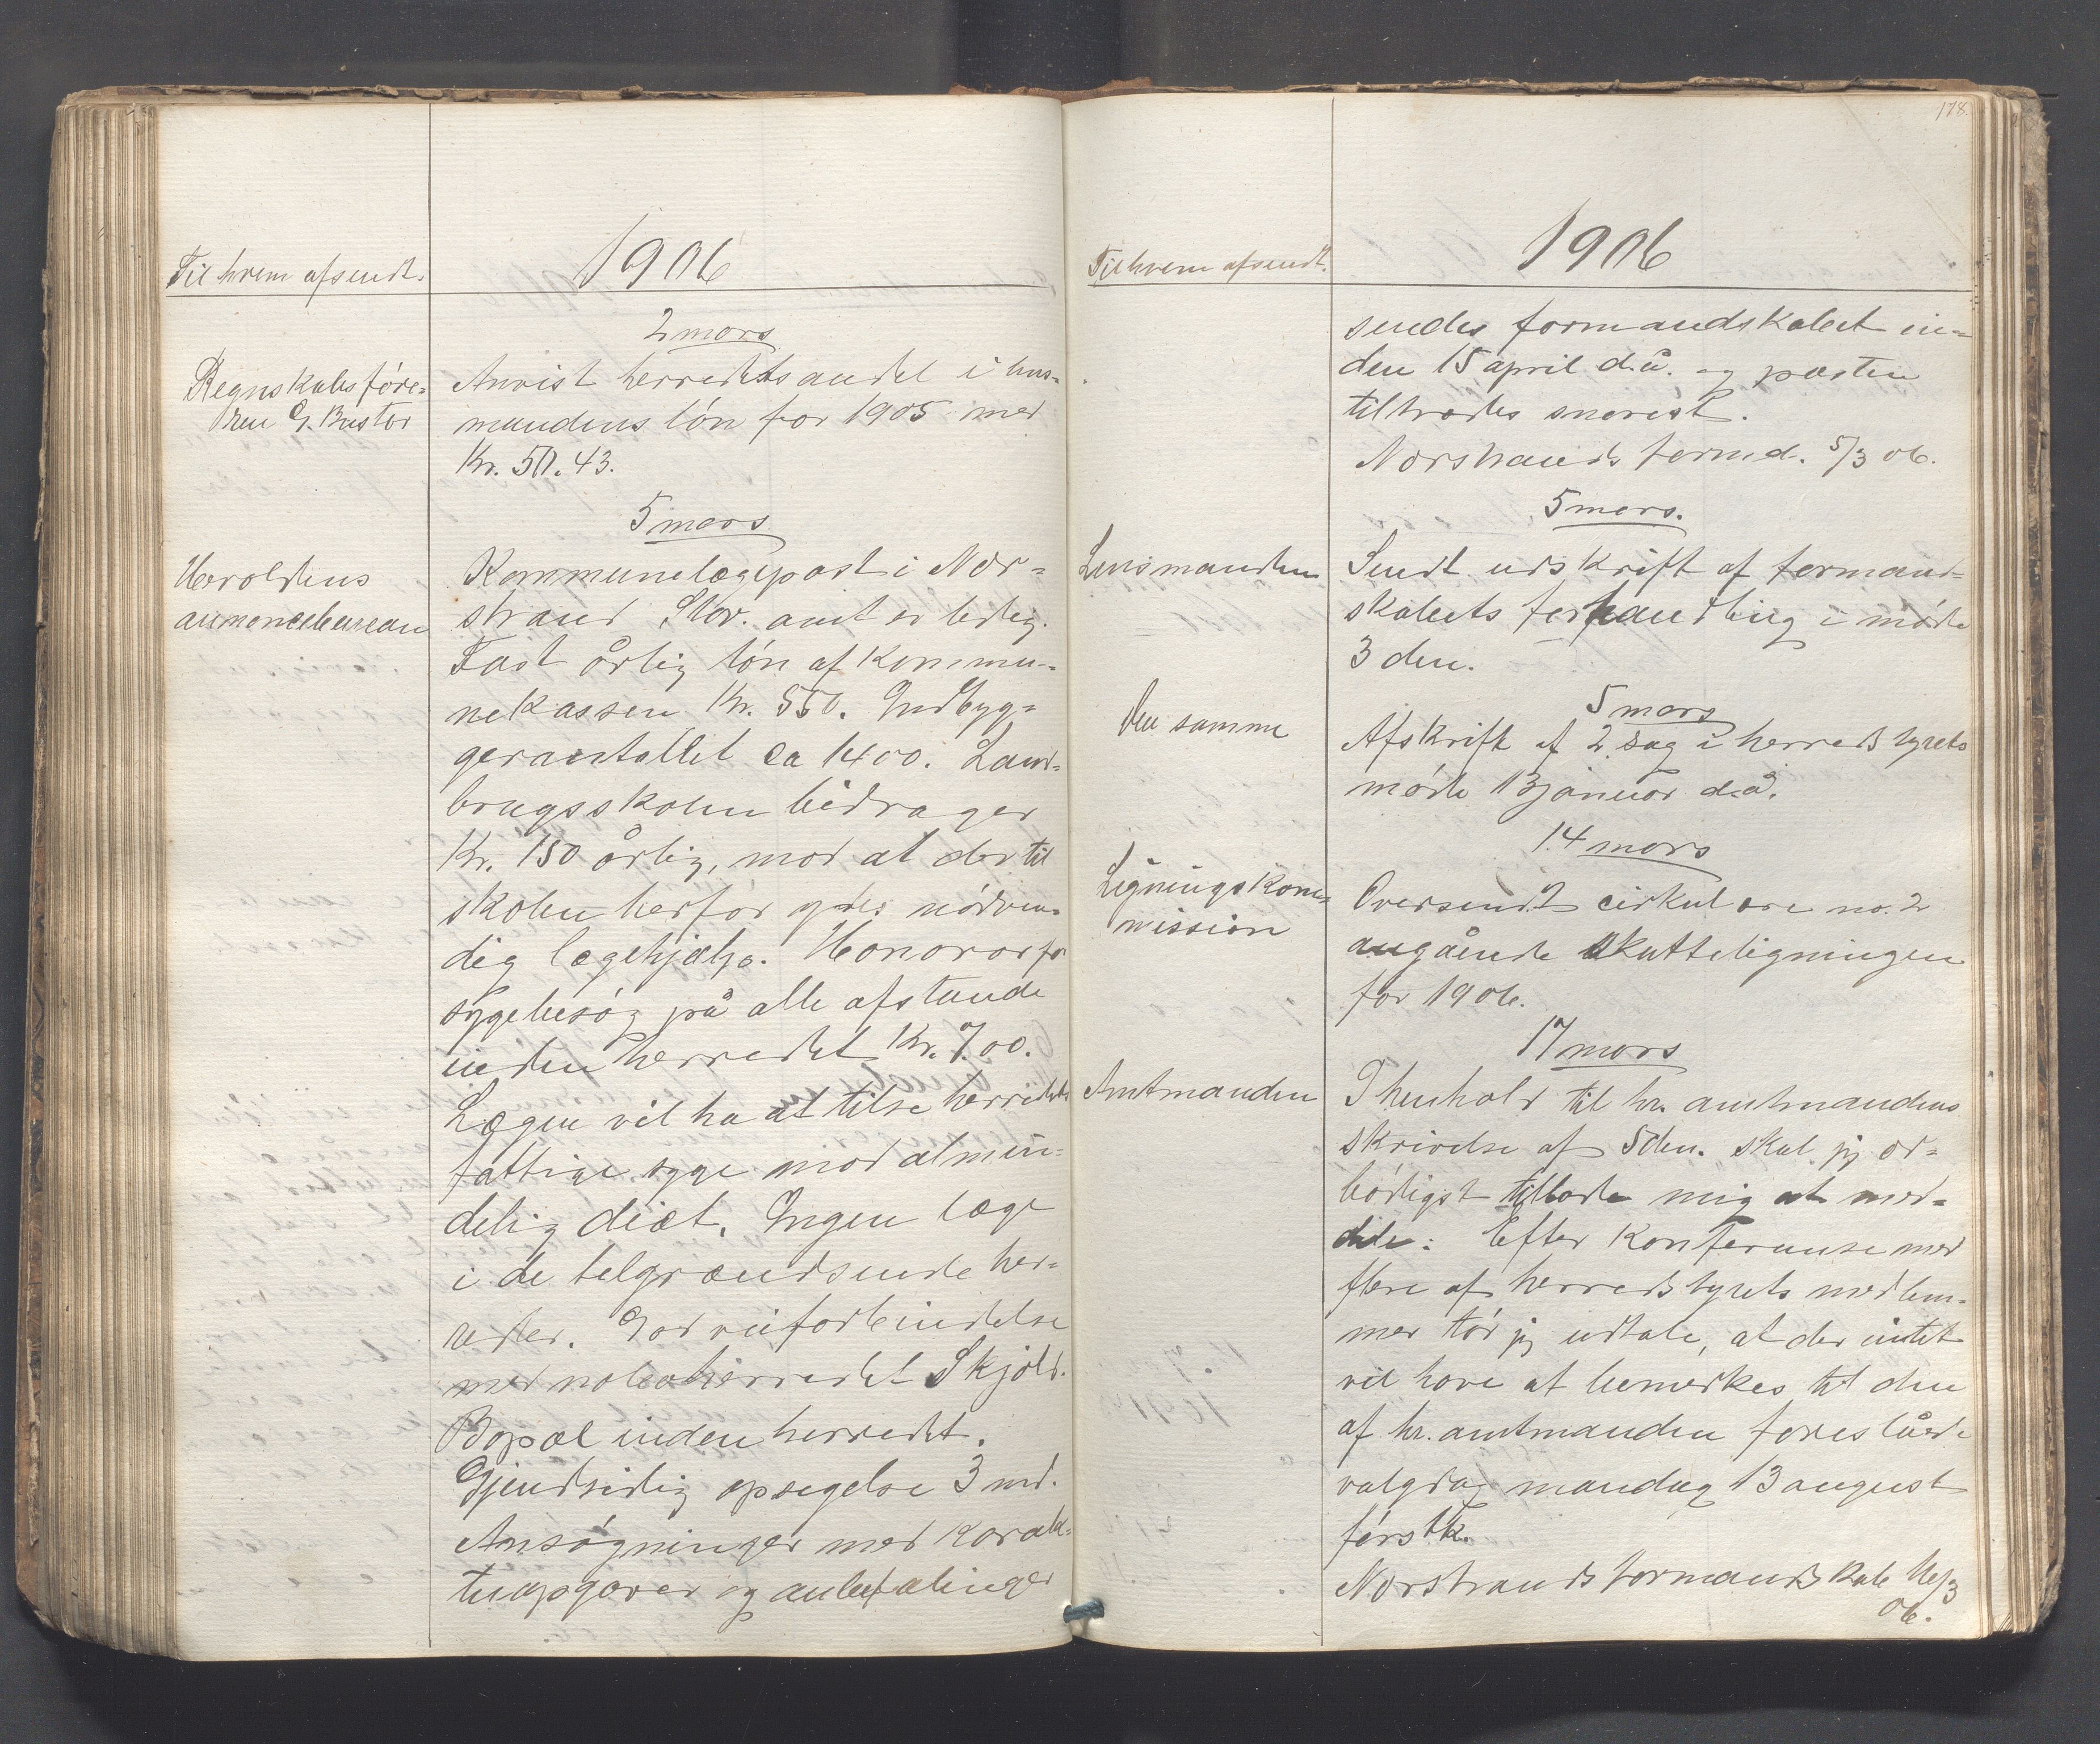 Til hvem afsendt.
1906
2 mars
Regnskabsføre=
ren G. Bastor
Anvist herredets andel i hus-
mandens løn for 1905 med
Kr. 50.43.
5 mars
Heroldens
annoncebureau
Kommunelægepost i Nor=
strand Stav. amt er ledig.
Fast årlig løn af kommu-
nekassen Kr. 550. Indbyg=
gerantallet ca 1400. Land=
brugsskolen bidrager
Kr. 150 årlig, mod at der til
skolen herfor ydes nødven-
dig lægehjælp. Honorar for
sygebesøg på alle afstande
inden herredet Kr. 7.00.
Lægen vil ha at tilse herredets
fattige syge mod almin=
delig diæt. Ingen læge
i de tilgrændsende her=
reder. God veiforbindelse
med naboherredet Skjold.
Bopæl inden herredet.
Gjendsidig opsigelse 3 md.
Ansøgninger med karak=
teropgaver og anbefalinger
178.
Til hvem afsendt.
1906
sendes formandskabet in=
den 15 april d.å. og posten
tiltrædes snarest.
Norstrands formd. 5/3 06.
5 mars.
Lensmanden
Sendt udskrift af formand=
skabets forhandling i møde
3 den.
5 mars
Den samme
Afskrift af 2. sag i herredstyrets
møde 13 januar d.å.
14 mars
Ligningskom=
mission
Oversendt cirkulære no. 2
angående skatteligningen
for 1906.
17 mars
Amtmanden
I henhold til hr. amtmandens
skrivelse af 5 den. skal jeg ær=
bødigst tillade mig at med=
dele: Efter konferanse med
flere af herredstyrets medlem-
mer tør jeg udtale, at der intet
vil have at bemerkes til den
af hr. amtmanden foreslåede
valgdag mandag 13 august
førstk.
Norstrands formandskab 16/3
06.